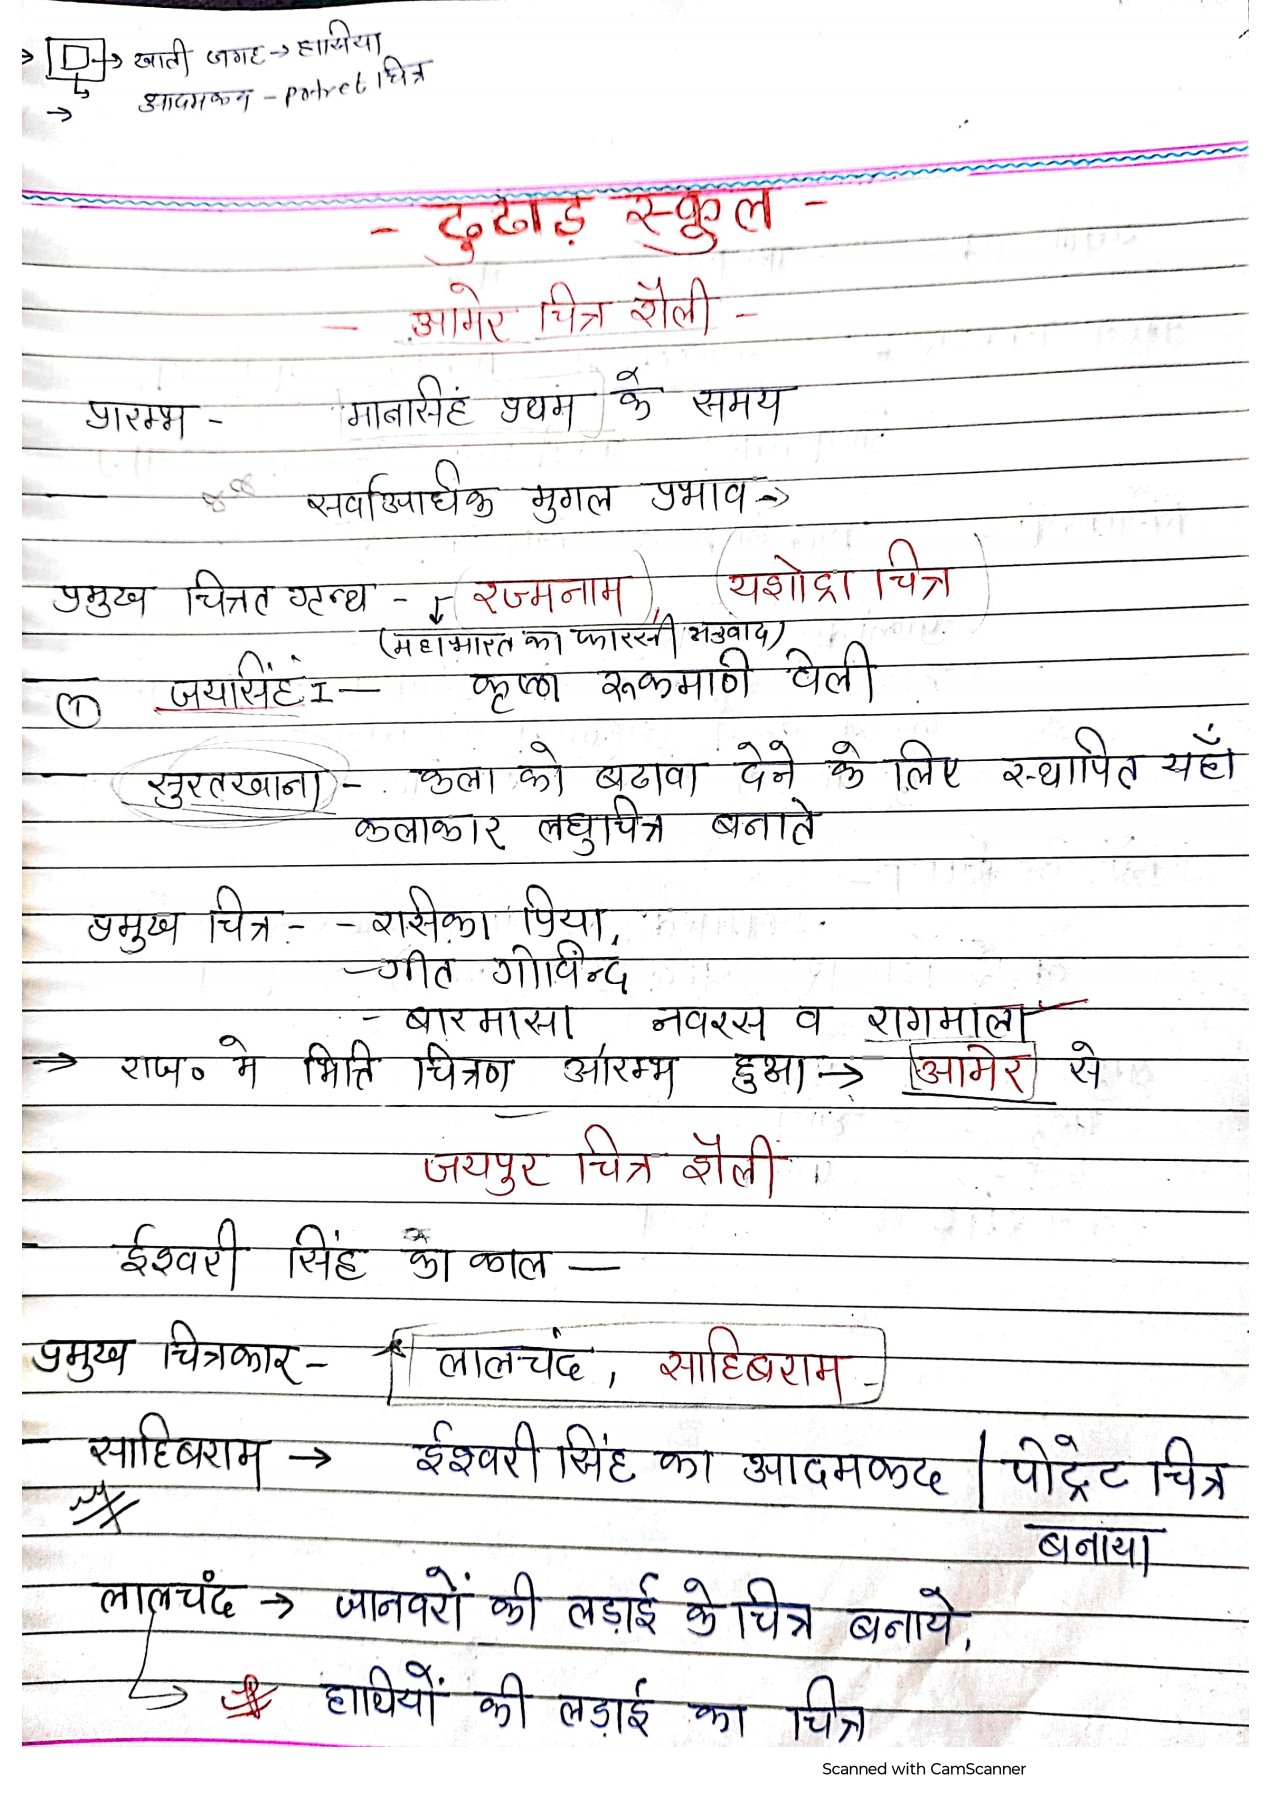 → खाली जगह → हासिया
आदमकद - potret चित्र
→
- ढुढाड़ स्कूल -
- आमेर चित्र शैली -
प्रारम्भ - मानसिंह प्रथम के समय
सर्वाअधिक मुगल प्रभाव →
प्रमुख चित्रित ग्रन्थ - (रज्मनाम), (यशोद्रा चित्र)
(महाभारत का फारसी अनुवाद)
① जयसिंह I — कृष्ण रूकमाणी वेली
सुरतखाना - कला को बढावा देने के लिए स्थापित यहाँ
कलाकार लघुचित्र बनाते
प्रमुख चित्र - - रासीका प्रिया,
- गीत गोविन्द
- बारमासा नवरस व रागमाला
→ राज० मे भिति चित्रण आरम्भ हुआ → आमेर से
जयपुर चित्र शैली
ईश्वरी सिंह का काल —
प्रमुख चित्रकार - लालचंद, साहिबराम -
साहिबराम → ईश्वरी सिंह का आदमकद | पोट्रेट चित्र
बनाया
लालचंद → जानवरों की लड़ाई के चित्र बनाये,
→ हाथियों की लड़ाई का चित्र
Scanned with CamScanner